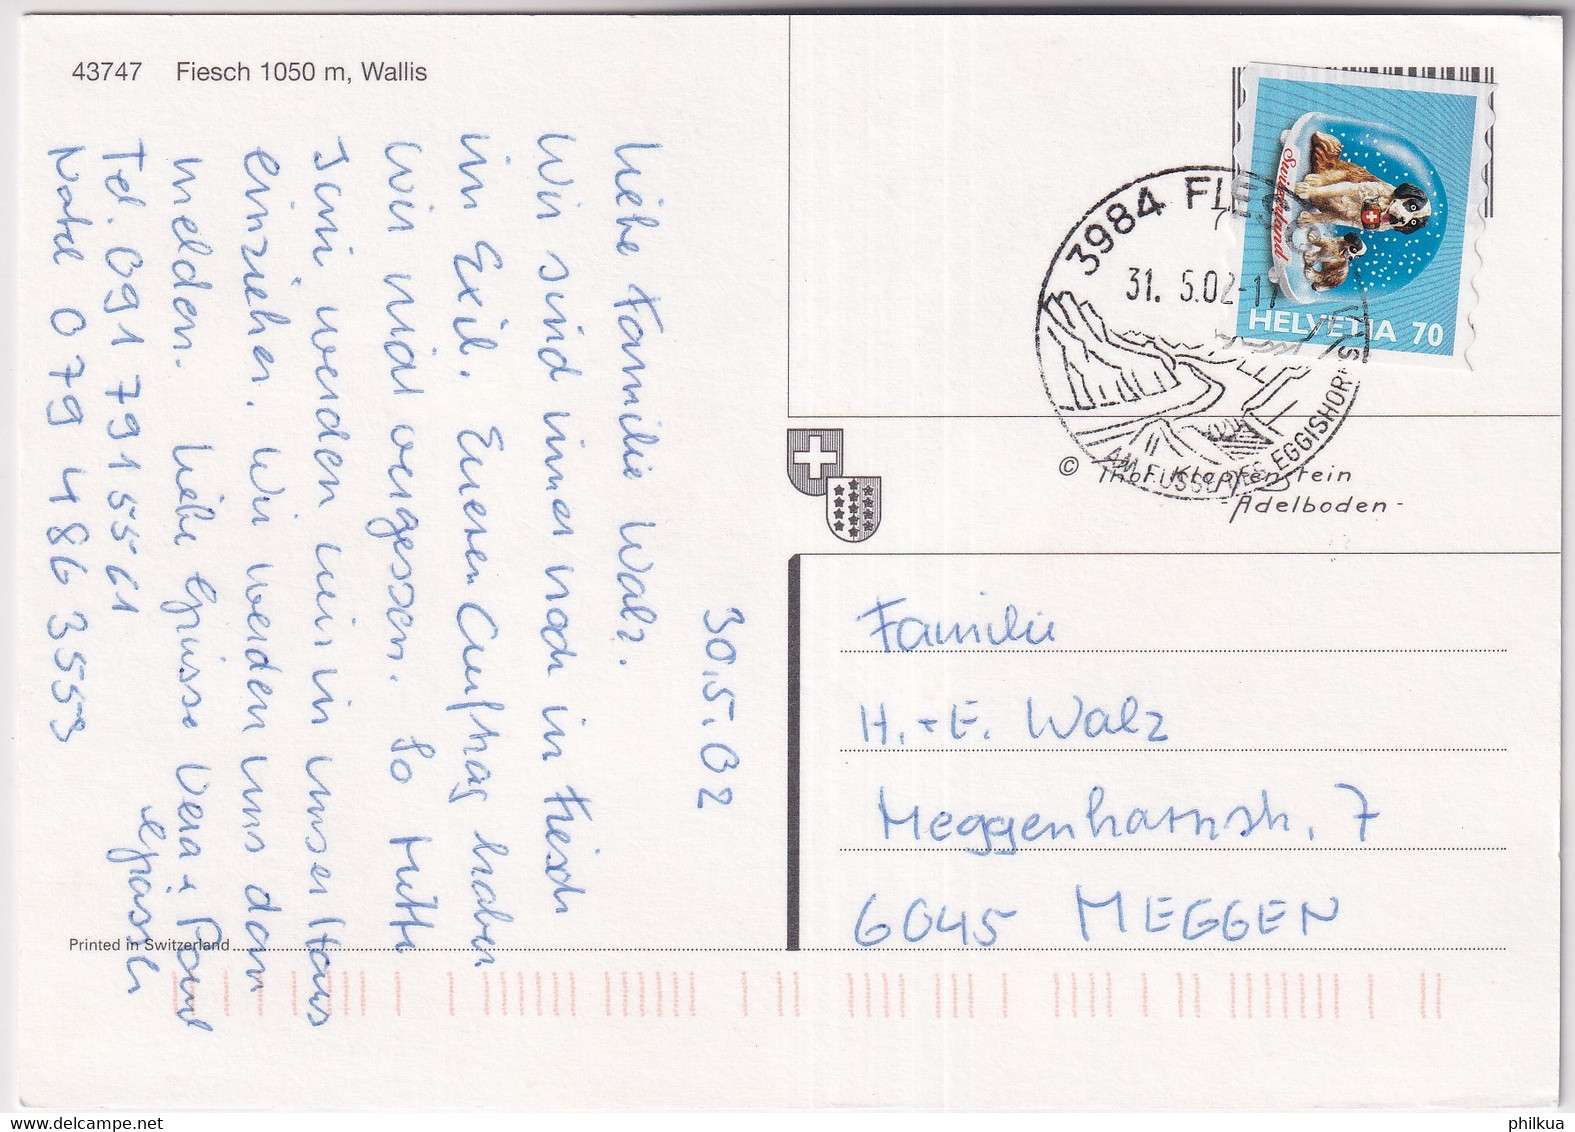 43747 Fiesch 1050 m, Wallis
30.5.02
Liebe Familie Walz.
Wir sind immer noch in Fiesch
im Exil. Eueren Auftrag haben
wir nicht vergessen. So Mitte
Juni werden wir in unser Haus
einziehen. Wir werden uns dann
melden. Liebe Grüsse Vera +
Tel. 091 791 55 61
Natel 079 486 3559
Printed in Switzerland
Switzerland
HELVETIA 70
3984 FIESCH
31. 5.02-17
AM FUSSE DES EGGISHORNS
© Thor. Klopfenstein
- Adelboden -
Familie
H. + E. Walz
Meggenhornstr. 7
6045 MEGGEN
philkua